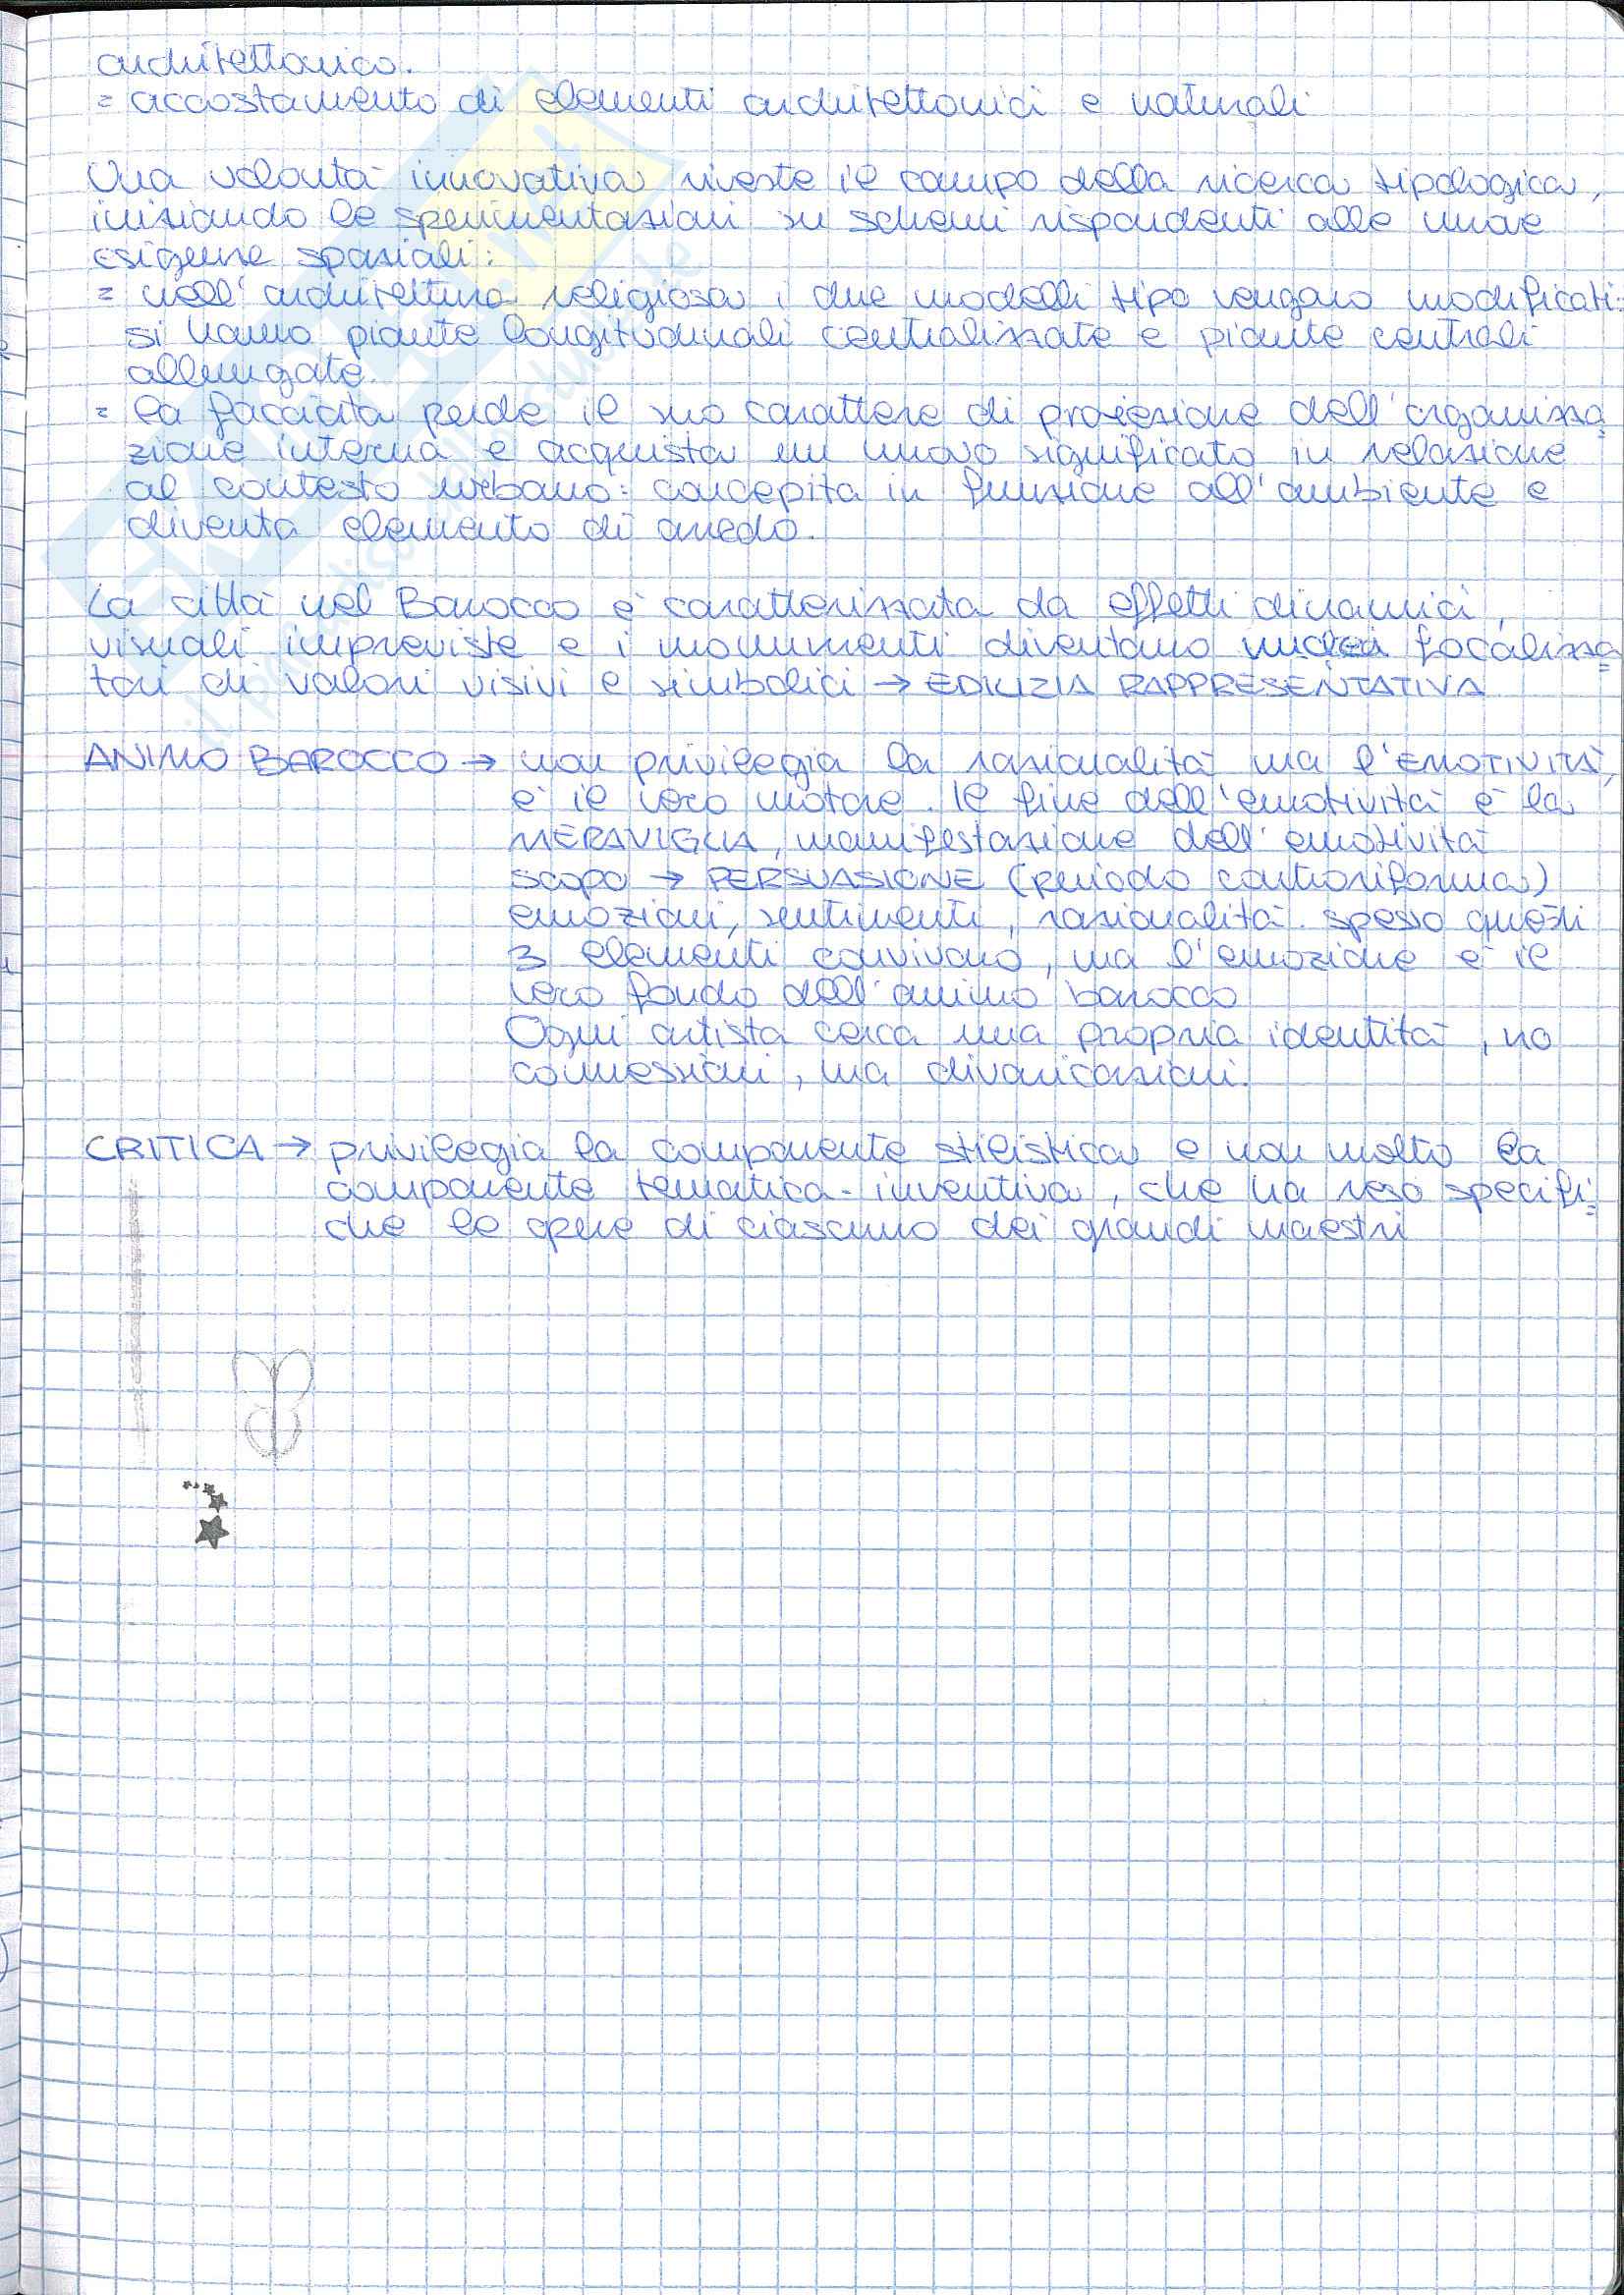 architettonico.
= accostamento di elementi architettonici e naturali
Una volontà innovativa riveste il campo della ricerca tipologica,
iniziando le sperimentazioni su schemi rispondenti alle nuove
esigenze spaziali:
= nell'architettura religiosa i due modelli tipo vengono modificati:
si hanno piante longitudinali centralizzate e piante centrali
allungate.
= la facciata perde il suo carattere di proiezione dell'organizza
zione interna e acquista un nuovo significato in relazione
al contesto urbano: concepita in funzione all'ambiente e
diventa elemento di arredo.
La città nel Barocco è caratterizzata da effetti dinamici,
visuali impreviste e i monumenti diventano nuclei focalizza
tori di valori visivi e simbolici → EDILIZIA RAPPRESENTATIVA
ANIMO BAROCCO → non privilegia la razionalità ma l'EMOTIVITÀ,
è il vero motore. Il fine dell'emotività è la
MERAVIGLIA, manifestazione dell'emotività
scopo → PERSUASIONE (periodo controriforma)
emozioni, sentimenti, razionalità. spesso questi
3 elementi convivono, ma l'emozione è il
vero fondo dell'animo barocco
Ogni artista cerca una propria identità, no
connessioni, ma divaricazioni.
CRITICA → privilegia la componente stilistica e non molto la
componente tematica-inventiva, che ha reso specifi
che le opere di ciascuno dei grandi maestri